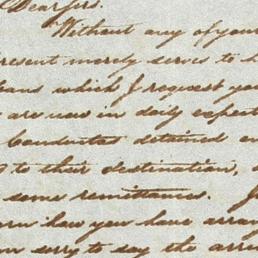 Dear Sirs.
Without any of your
present merely serves to h
ans which I request you
are now in daily expect
Conductas detained en
to their destination,
some remittance.
arn how you have arran
om sorry to say the arri